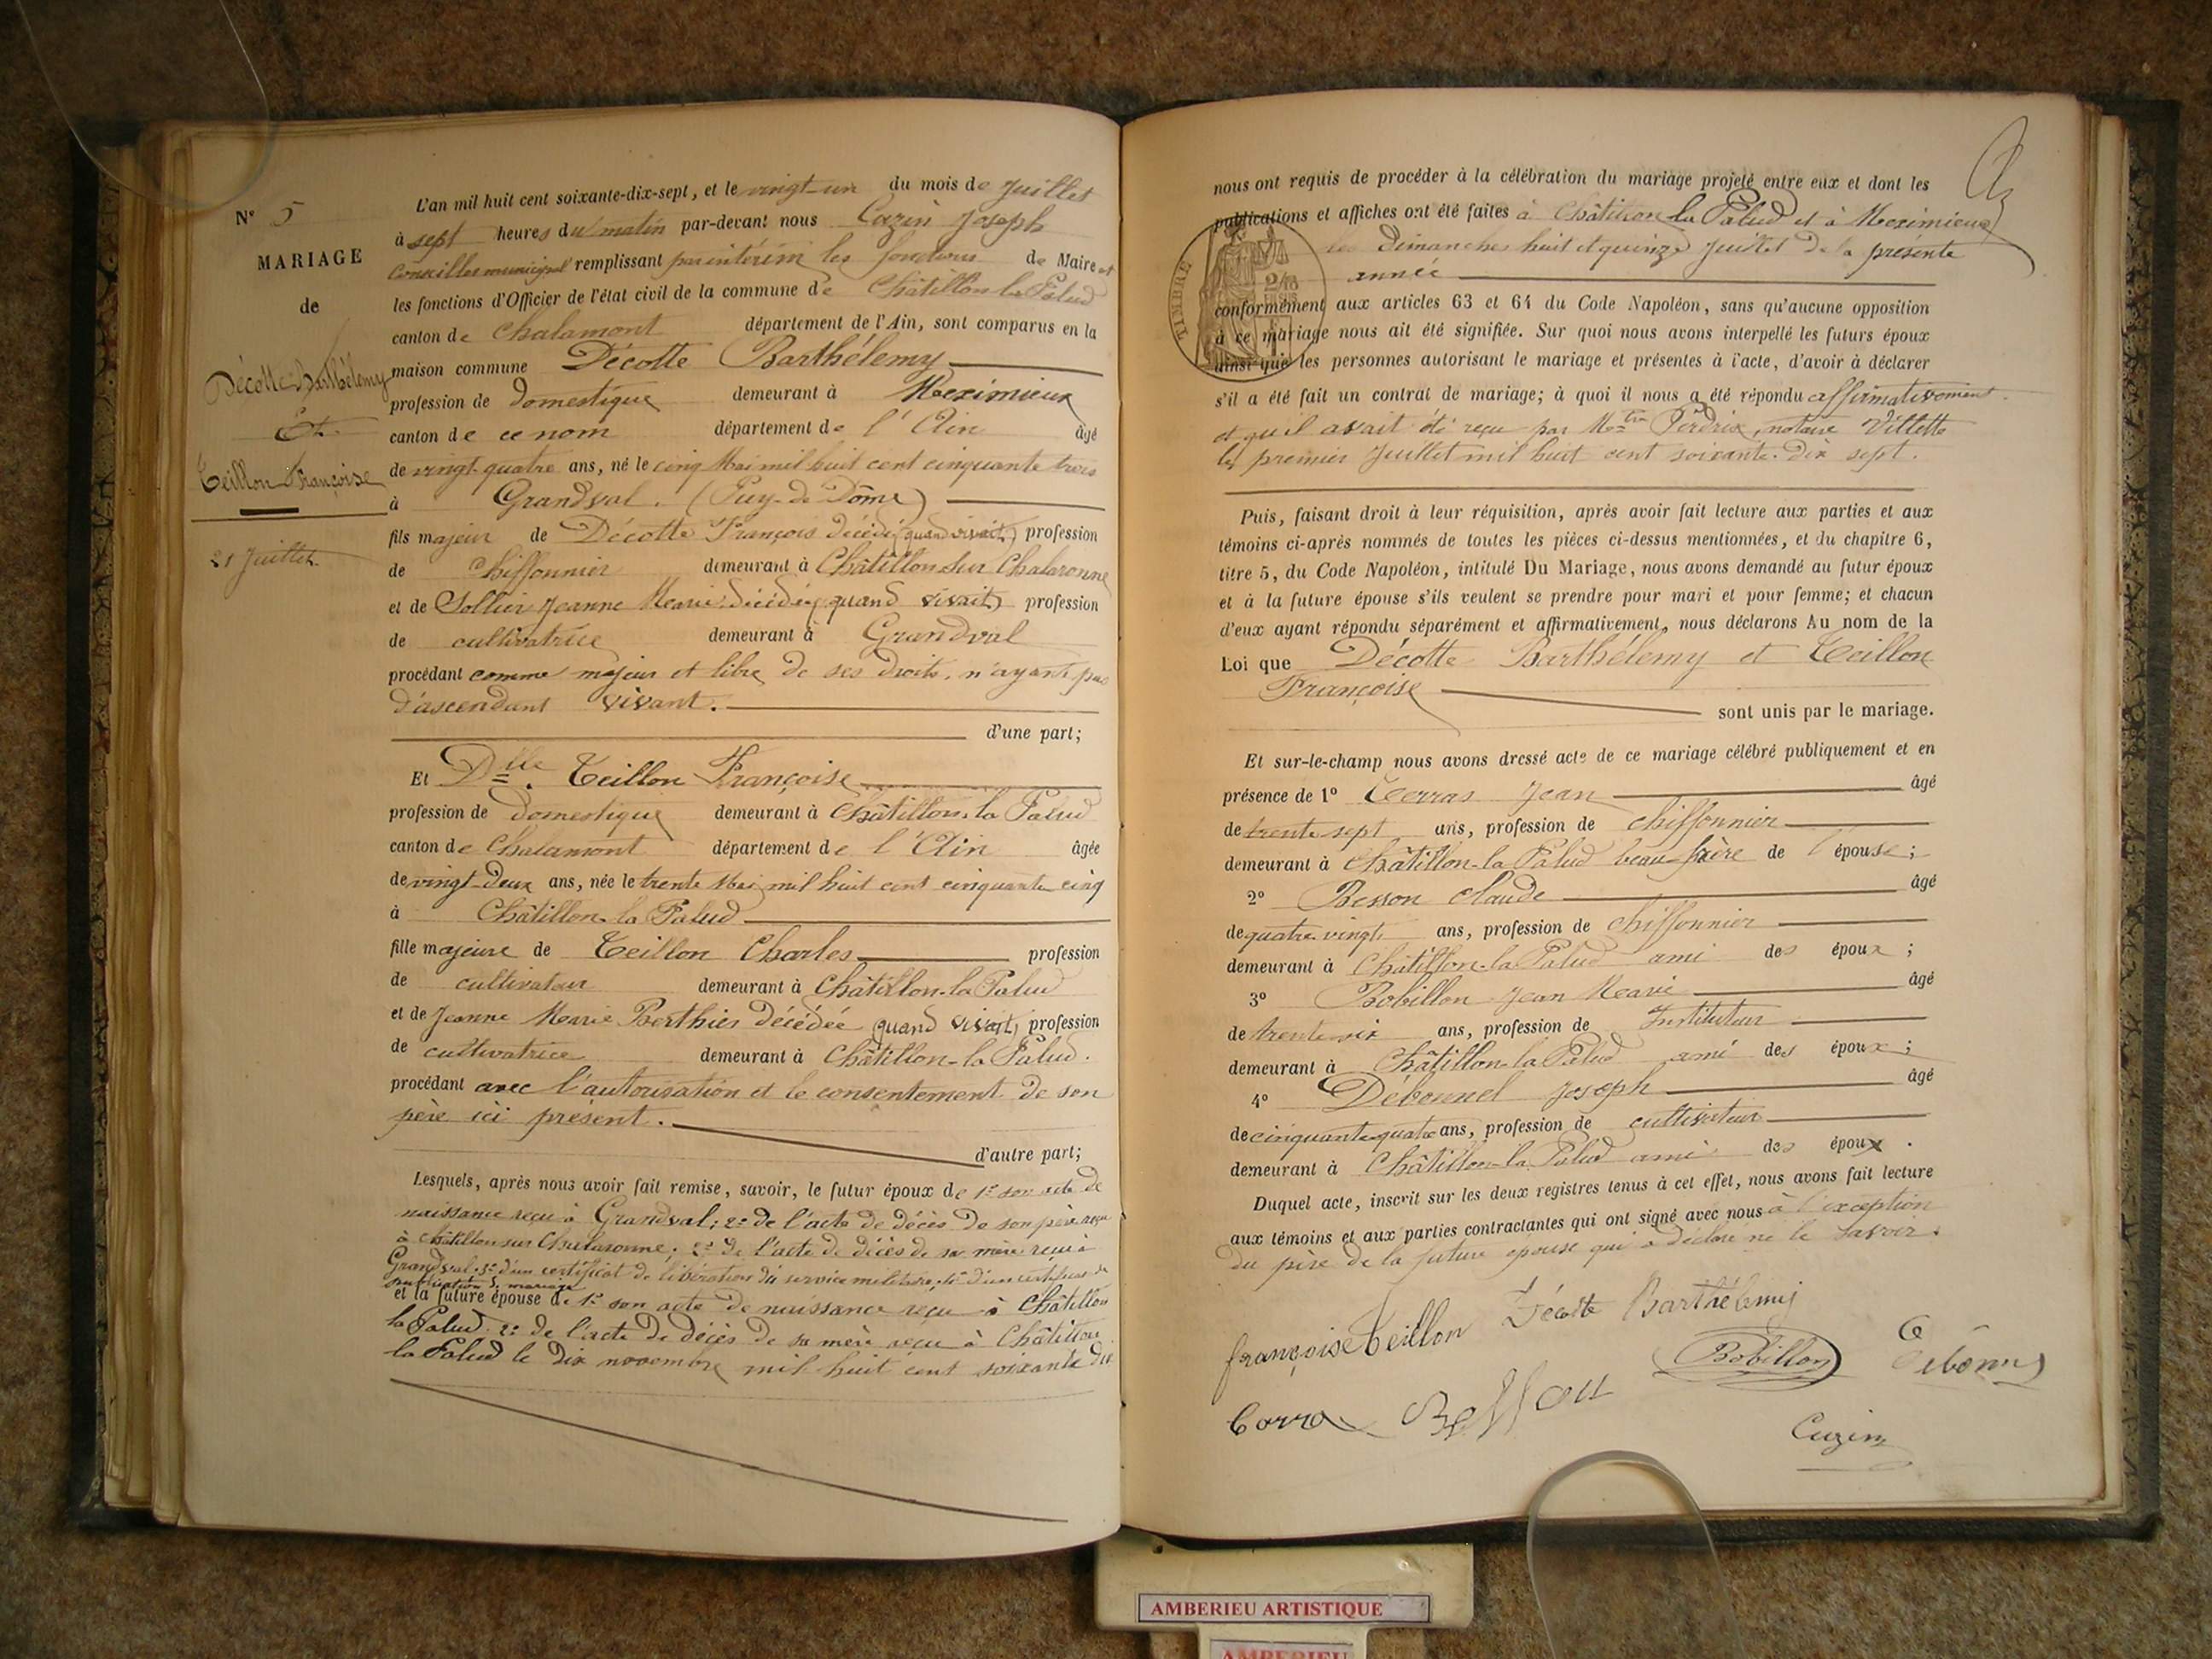 N° 5
MARIAGE
de
Décotte Barthélemy
Et
Teillon Françoise
21 Juillet
L'an mil huit cent soixante-dix-sept, et le vingt-un du mois de Juillet
à sept heures du matin par-devant nous Cuzin Joseph
Conseiller municipal remplissant par intérim les fonctions de Maire et
les fonctions d'Officier de l'état civil de la commune de Châtillon la Palud
canton de Chalamont département de l'Ain, sont comparus en la
maison commune Décotte Barthélemy
profession de domestique demeurant à Meximieux
canton de ce nom département de l'Ain âgé
de vingt-quatre ans, né le cinq Mai mil huit cent cinquante trois
à Grandval. (Puy-de-Dôme)
fils majeur de Décotte François décédé (quand vivait) profession
de chiffonnier demeurant à Châtillon sur Chalaronne
et de Sollier Jeanne Marie décédée (quand vivait) profession
de cultivatrice demeurant à Grandval
procédant comme majeur et libre de ses droits, n'ayant pas
d'ascendant vivant.
d'une part;
Et Dlle. Teillon Françoise
profession de domestique demeurant à Châtillon-la Palud
canton de Chalamont département de l'Ain âgée
de vingt-deux ans, née le trente Mai mil huit cent cinquante cinq
à Châtillon-la Palud
fille majeure de Teillon Charles profession
de cultivateur demeurant à Châtillon-la Palud
et de Jeanne Marie Berthier décédée (quand vivait) profession
de cultivatrice demeurant à Châtillon-la Palud.
procédant avec l'autorisation et le consentement de son
père ici présent.
d'autre part;
Lesquels, après nous avoir fait remise, savoir, le futur époux de 1° son acte de
naissance reçu à Grandval; 2° de l'acte de décès de son père reçu
à Châtillon sur Chalaronne; 2° de l'acte de décès de sa mère reçu à
Grandval. 3° d'un certificat de libération du service militaire. 4° d'un certificat de
publication de mariage
et la future épouse de 1° son acte de naissance reçu à Châtillon
la Palud. 2° de l'acte de décès de sa mère reçu à Châtillon
la Palud le dix novembre mil huit cent soixante dix
nous ont requis de procéder à la célébration du mariage projeté entre eux et dont les
publications et affiches ont été faites à Châtillon la Palud et à Meximieux
les dimanches huit et quinze Juillet de la présente
année
TIMBRE
conformément aux articles 63 et 64 du Code Napoléon, sans qu'aucune opposition
à ce mariage nous ait été signifiée. Sur quoi nous avons interpellé les futurs époux
ainsi que les personnes autorisant le mariage et présentes à l'acte, d'avoir à déclarer
s'il a été fait un contrat de mariage; à quoi il nous a été répondu affirmativement
et qu'il avait été reçu par Mtre Perdrix, notaire Villette
le premier Juillet mil huit cent soixante-dix sept.
Puis, faisant droit à leur réquisition, après avoir fait lecture aux parties et aux
témoins ci-après nommés de toutes les pièces ci-dessus mentionnées, et du chapitre 6,
titre 5, du Code Napoléon, intitulé Du Mariage, nous avons demandé au futur époux
et à la future épouse s'ils veulent se prendre pour mari et pour femme; et chacun
d'eux ayant répondu séparément et affirmativement, nous déclarons Au nom de la
Loi que Décotte Barthélemy et Teillon
Françoise
sont unis par le mariage.
Et sur-le-champ nous avons dressé acte de ce mariage célébré publiquement et en
présence de 1° Terras Jean âgé
de trente sept ans, profession de chiffonnier
demeurant à Châtillon-la Palud beau frère de l'épouse;
2° Besson Claude âgé
de quatre vingt ans, profession de chiffonnier
demeurant à Châtillon-la Palud ami des époux;
3° Bobillon Jean Marie âgé
de trente six ans, profession de Instituteur
demeurant à Châtillon-la Palud ami des époux;
4° Débonnel Joseph âgé
de cinquante-quatre ans, profession de cultivateur
demeurant à Châtillon-la Palud ami des époux.
Duquel acte, inscrit sur les deux registres tenus à cet effet, nous avons fait lecture
aux témoins et aux parties contractantes qui ont signé avec nous à l'exception
du père de la future épouse qui a déclaré ne le savoir.
françoise Teillon Décotte Barthélemy
Bobillon
Besson
Cuzin
AMBERIEU ARTISTIQUE
AMBERIEU